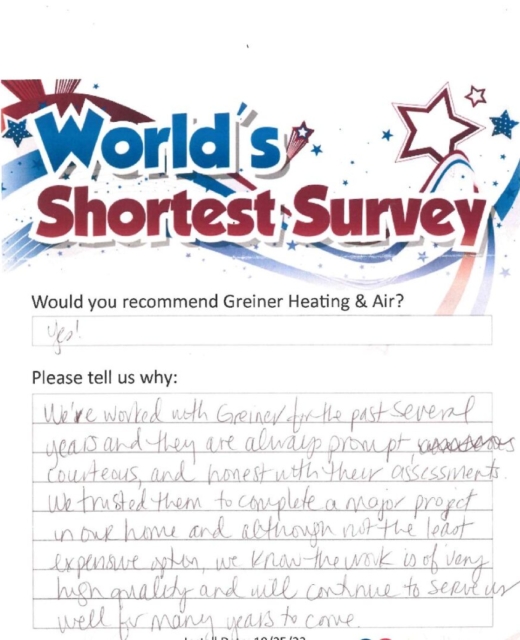 World's
Shortest Survey
Would you recommend Greiner Heating & Air?
Yes!
Please tell us why:
We've worked with Greiner for the past several
years and they are always prompt,
courteous, and honest with their assessments.
We trusted them to complete a major project
in our home and although not the least
expensive option, we know the work is of very
high quality and will continue to serve us
well for many years to come.